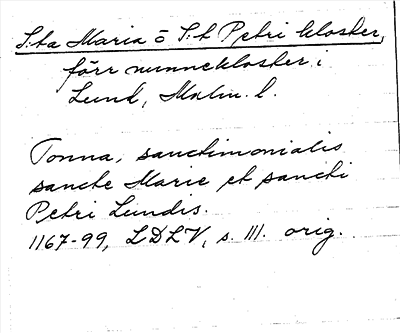 S:ta Maria o S:t Petri kloster,
förr nunnekloster i
Lund, Malm. l.
Tonna, sanctimonialis
sancte Marie et sancti
Petri Lundis.
1167-99, LDLV, s. 111. orig.